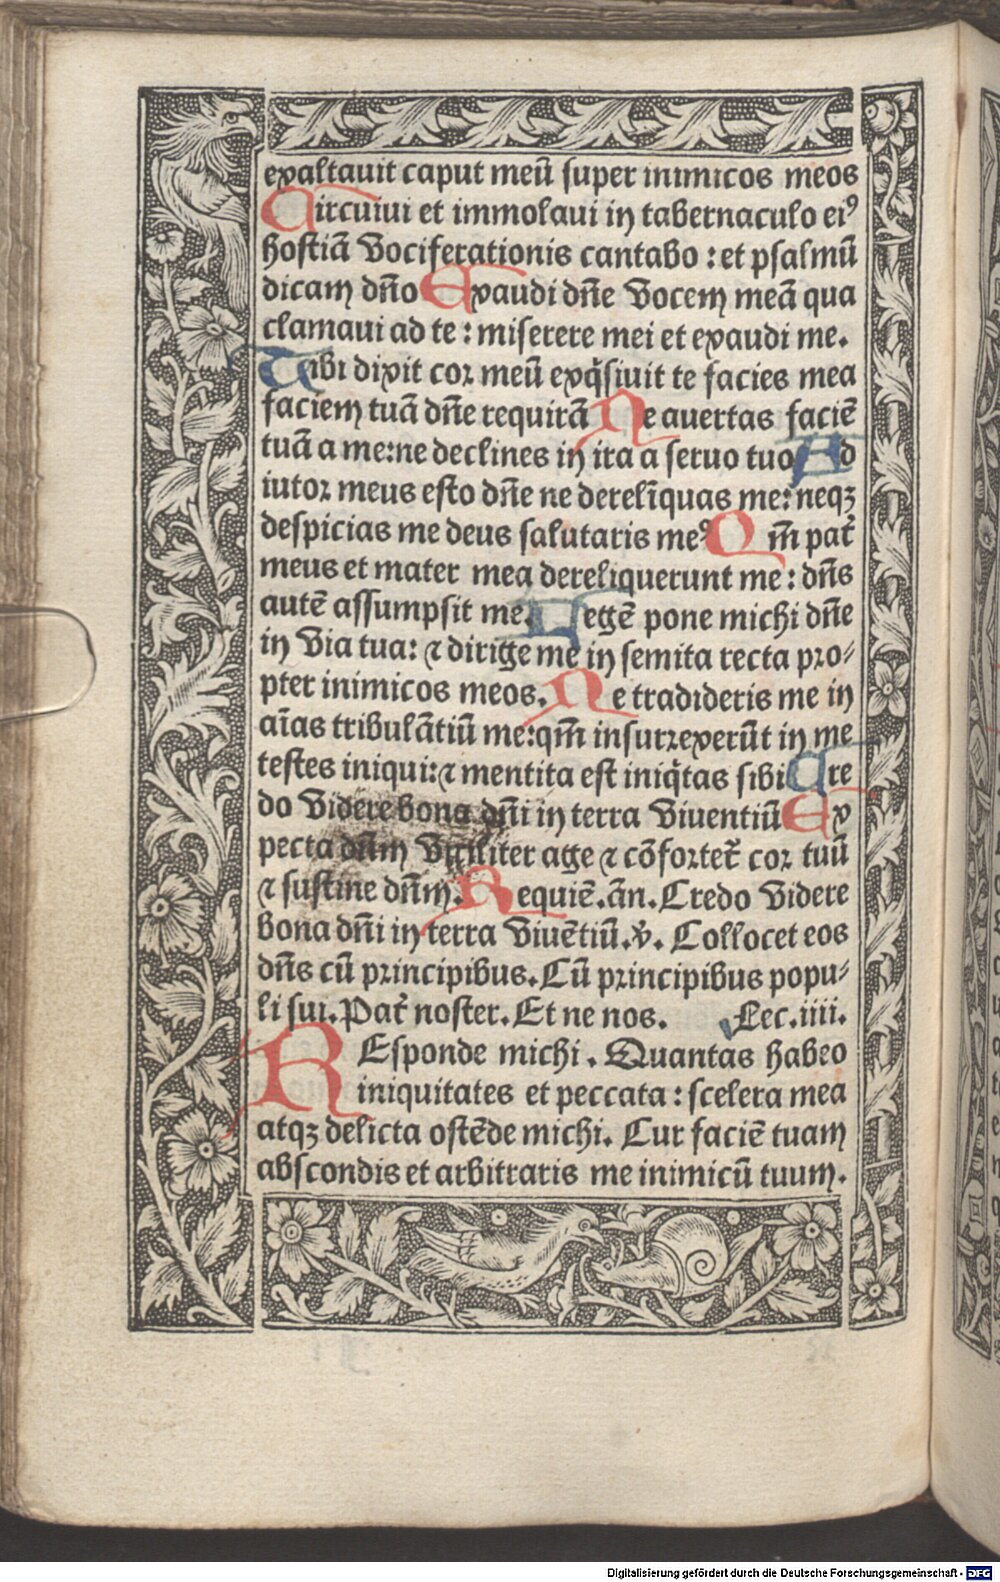 exaltauit caput meū super inimicos meos
Circuiui et immolaui in tabernaculo eiꝰ
hostiā vociferationis cantabo : et psalmū
dicam dn̄o Exaudi dn̄e vocem meā qua
clamaui ad te : miserere mei et exaudi me.
Tibi dixit cor meū exq̄siuit te facies mea
faciem tuā dn̄e requirā Ne auertas faciē
tuā a me:ne declines in ira a seruo tuo Ad
iutor meus esto dn̄e ne derelīquas me: neqꝫ
despicias me deus salutaris meꝰ Qm̄ pat̄
meus et mater mea dereliquerunt me : dn̄s
autē assumpsit me. Legē pone michi dn̄e
in via tua: ⁊ dirige me in semita recta pro/
pter inimicos meos. Ne tradideris me in
aīas tribulātiū me:qm̄ insurrexerūt in me
testes iniqui:⁊ mentita est iniq̄tas sibi Cre
do videre bona dn̄i in terra viuentiū Ex
pecta dn̄m viriliter age ⁊ cōfortet̄ cor tuū
⁊ sustine dn̄m. Requiē.ān. Credo videre
bona dn̄i in terra viuētiū.v̄. Collocet eos
dn̄s cū principibus. Cū principibus popu/
li sui. Pat̄ noster. Et ne nos. Lec.iiii.
REsponde michi . Quantas habeo
iniquitates et peccata : scelera mea
atqꝫ delicta ostēde michi. Cur faciē tuam
abscondis et arbitraris me inimicū tuum.
Digitalisierung gefördert durch die Deutsche Forschungsgemeinschaft - DFG